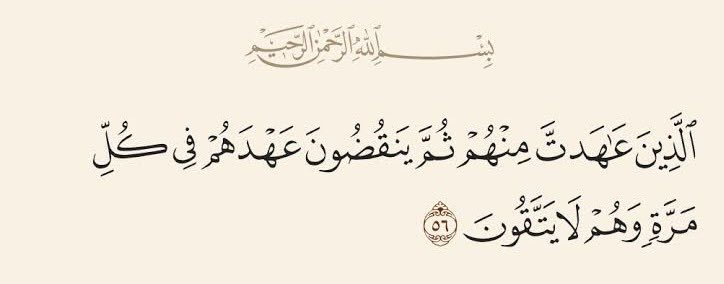 بِسْمِ ٱللَّهِ ٱلرَّحْمَٰنِ ٱلرَّحِيمِ
ٱلَّذِينَ عَٰهَدتَّ مِنْهُمْ ثُمَّ يَنقُضُونَ عَهْدَهُمْ فِى كُلِّ
مَرَّةٍ وَهُمْ لَا يَتَّقُونَ ٥٦